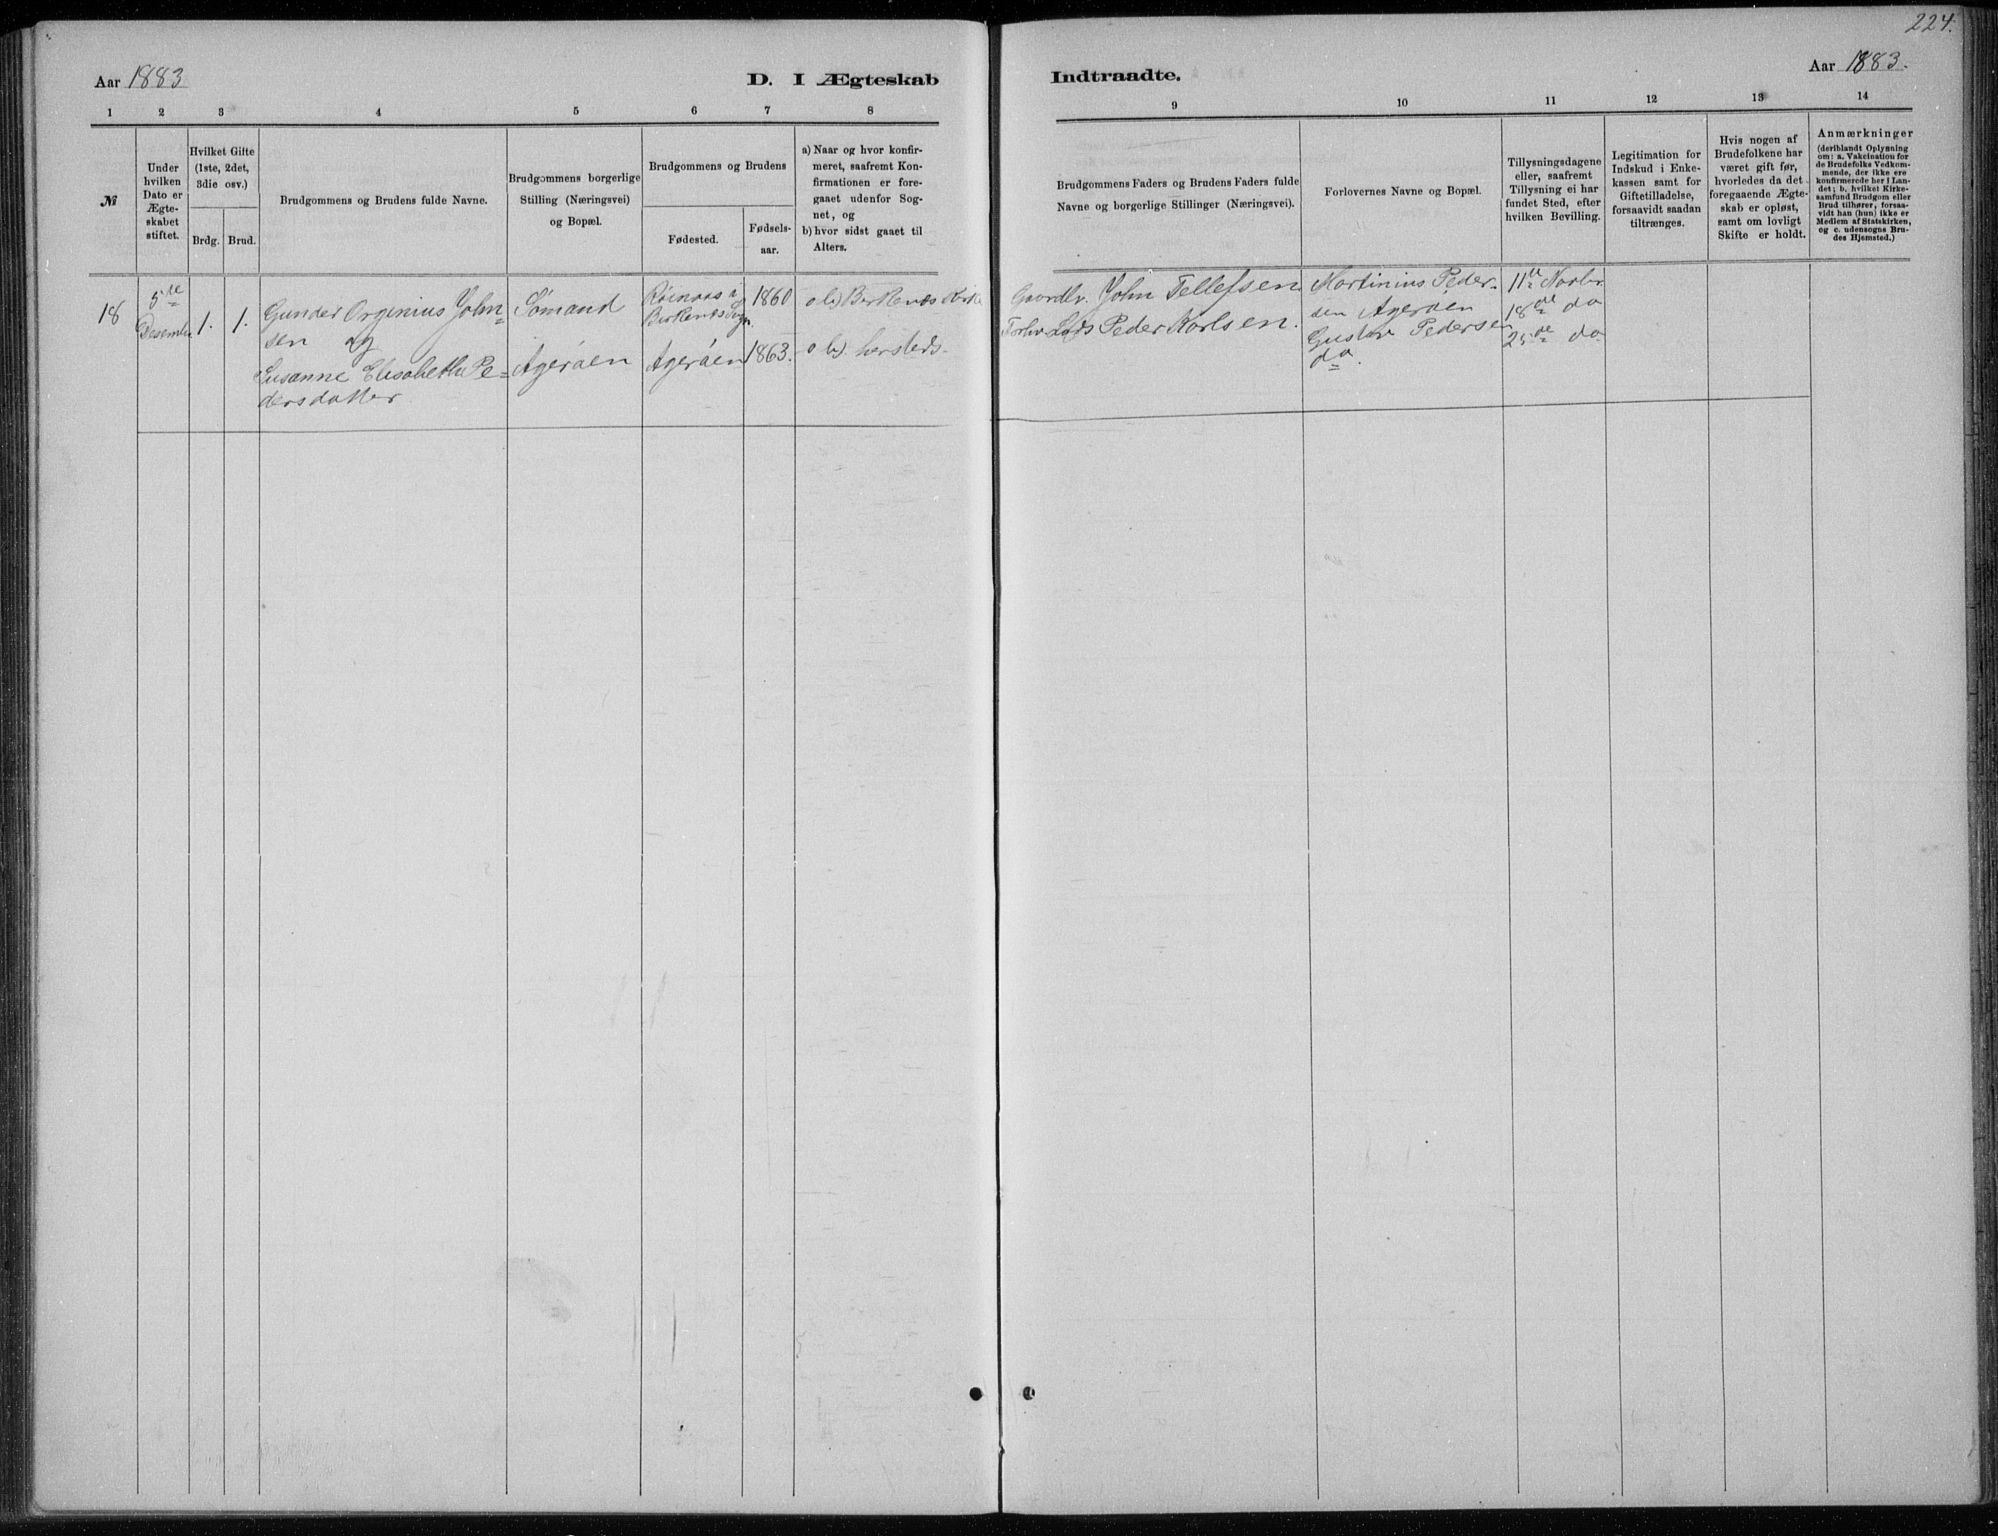 224.
Aar 1883
D. I Ægteskab
Indtraadte.
Aar 1883.
1 2 3 4 5 6 7 8 9 10 11 12 13 14
№
Under
hvilken
Dato er
Ægte-
skabet
stiftet.
Hvilket Gifte
(1ste, 2det,
3die osv.)
Brdg. Brud.
Brudgommens og Brudens fulde Navne.
Brudgommens borgerlige
Stilling (Næringsvei)
og Bopæl.
Brudgommens og Brudens
Fødested.
Fødsels-
aar.
a) Naar og hvor konfir-
meret, saafremt Kon-
firmationen er fore-
gaaet udenfor Sog-
net, og
b) hvor sidst gaaet til
Alters.
Brudgommens Faders og Brudens Faders fulde
Navne og borgerlige Stillinger (Næringsvei).
Forlovernes Navne og Bopæl.
Tillysningsdagene
eller, saafremt
Tillysning ei har
fundet Sted, efter
hvilken Bevilling.
Legitimation for
Indskud i Enke-
kassen samt for
Giftetilladelse,
forsaavidt saadan
tiltrænges.
Hvis nogen af
Brudefolkene har
været gift før,
hvorledes da det
foregaaende Ægte-
skab er opløst,
samt om lovligt
Skifte er holdt.
Anmærkninger
(deriblandt Oplysning
om: a. Vakcination for
de Brudefolks Vedkom-
mende, der ikke ere
konfirmerede her i Lan-
det; b. hvilket Kirke-
samfund Brudgom eller
Brud tilhører, forsaa-
vidt han (hun) ikke er
Medlem af Statskirken,
og c. udensogns Bru-
des Hjemsted.)
18
5te
Desembr
1. 1.
Gunder Orginius John=
sen og
Susanne Elisabetha Pe=
dersdatter
Sømand
Agerøen
i
Birkenæs Sogn.
Agerøen
1860
1863.
a b) Birkenæs Kirke
a b) hersteds.
Gaardbr. John Tellefsen.
Peder Karlsen.
Martinius Peder-
sen Agerøen
Gustav Pedersen
do.
11te Novbr.
18de do
25de do.